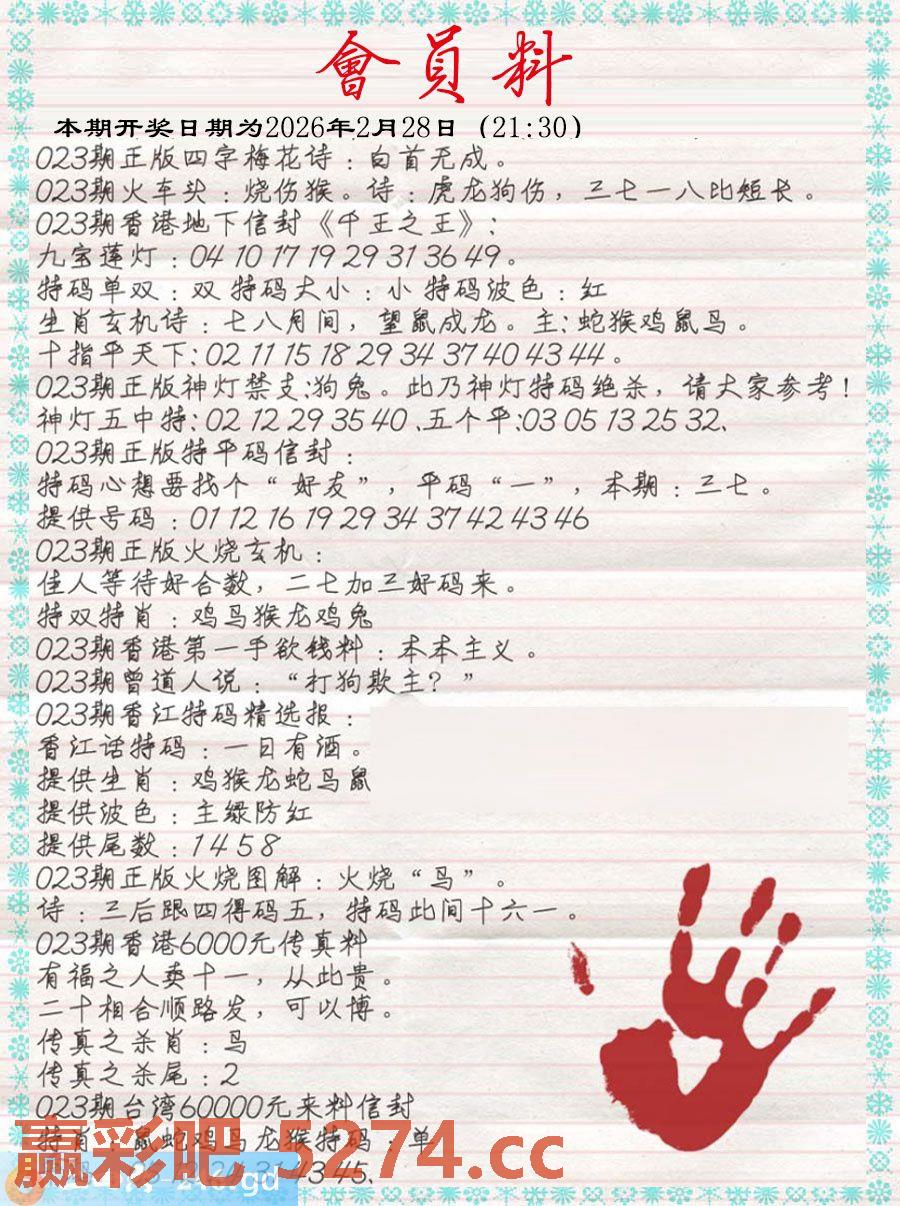 會員料
本期开奖日期为2026年2月28日（21:30）
023期正版四字梅花诗：白首无成。
023期火车头：烧伤猴。诗：虎龙狗伤，三七一八比短长。
023期香港地下信封《千王之王》：
九宝莲灯：04 10 17 19 29 31 36 49。
特码单双：双 特码大小：小 特码波色：红
生肖玄机诗：七八月间，望鼠成龙。主：蛇猴鸡鼠马。
十指平天下：02 11 15 18 29 34 37 40 43 44。
023期正版神灯禁支：狗兔。此乃神灯特码绝杀，请大家参考！
神灯五中特：02 12 29 35 40、五个平：03 05 13 25 32、
023期正版特平码信封：
特码心想要找个“好友”，平码“一”，本期：三七。
提供号码：01 12 16 19 29 34 37 42 43 46
023期正版火烧玄机：
佳人等待好合数，二七加三好码来。
特双特肖：鸡马猴龙鸡兔
023期香港第一手欲钱料：本本主义。
023期曾道人说：“打狗欺主？”
023期香江特码精选报：
香江话特码：一日有酒。
提供生肖：鸡猴龙蛇马鼠
提供波色：主绿防红
提供尾数：1 4 5 8
023期正版火烧图解：火烧“马”。
诗：三后跟四得码五，特码此间十六一。
023期香港6000元传真料
有福之人卖十一，从此贵。
二十相合顺路发，可以博。
传真之杀肖：马
传真之杀尾：2
023期台湾60000元来料信封
特肖：鼠蛇鸡马龙猴特码：单
43 45、
赢彩吧.5274.cc